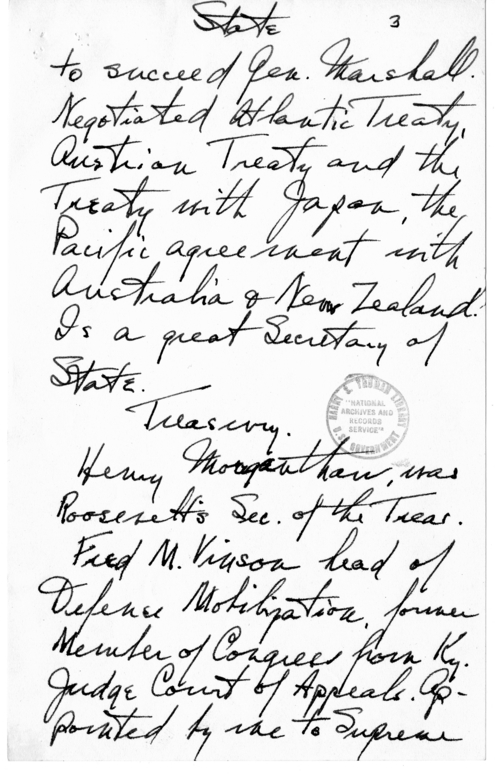 State 3
to succeed Gen. Marshall.
Negotiated Atlantic Treaty,
Austrian Treaty and the
Treaty with Japan, the
Pacific agreement with
Australia & New Zealand.
Is a great Secretary of
State.
HARRY S. TRUMAN LIBRARY
"NATIONAL
ARCHIVES AND
RECORDS
SERVICE"
U.S. GOVERNMENT
Treasury.
Henry Morganthau, was
Roosevelt's Sec. of the Treas.
Fred M. Vinson head of
Defense Mobilization, former
Member of Congress from Ky.
Judge Court of Appeals. Ap-
pointed by me to Supreme